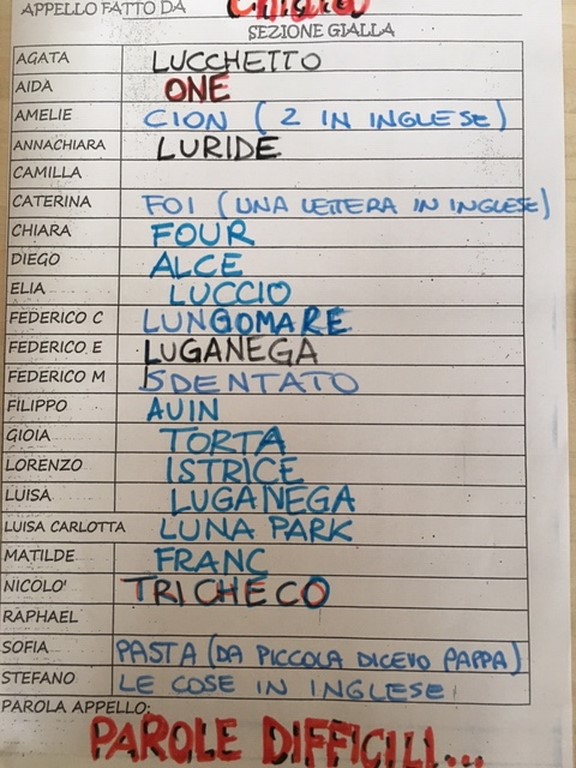 APPELLO FATTO DA Chiara
SEZIONE GIALLA
AGATA LUCCHETTO
AIDA ONE
AMELIE CION (2 IN INGLESE)
ANNACHIARA LURIDE
CAMILLA
CATERINA FOI (UNA LETTERA IN INGLESE)
CHIARA FOUR
DIEGO ALCE
ELIA LUCCIO
FEDERICO C LUNGOMARE
FEDERICO E LUGANEGA
FEDERICO M SDENTATO
FILIPPO AUIN
GIOIA TORTA
LORENZO ISTRICE
LUISA LUGANEGA
LUISA CARLOTTA LUNA PARK
MATILDE FRANC
NICOLO' TRICHECO
RAPHAEL
SOFIA PASTA (DA PICCOLA DICEVO PAPPA)
STEFANO LE COSE IN INGLESE
PAROLA APPELLO:
PAROLE DIFFICILI...